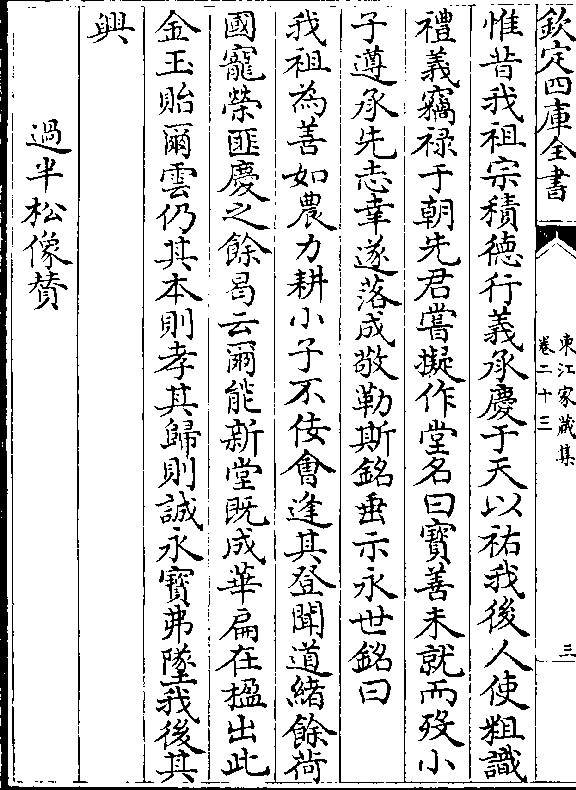 欽定四庫全書
東江家藏集
卷二十三
三
惟昔我祖宗積德行義承慶于天以祐我後人使粗識
禮義竊禄于朝先君嘗擬作堂名曰寶善未就而殁小
子遵承先志幸遂落成敬勒斯銘垂示永世銘曰
我祖為善如農力耕小子不佞會逢其登聞道緒餘荷
國寵榮匪慶之餘曷云爾能新堂既成華扁在楹出此
金玉貽爾雲仍其本則孝其歸則誠永寶弗墜我後其
興
過半松像贊